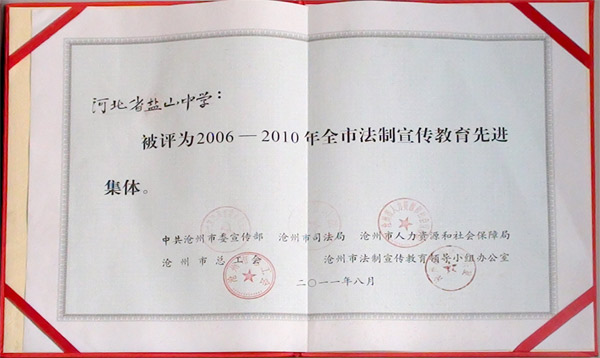 河北省盐山中学：
被评为2006—2010年全市法制宣传教育先进
集体。
中共沧州市委宣传部 沧州市司法局 沧州市人力资源和社会保障局
沧州市总工会 沧州市法制宣传教育领导小组办公室
二〇一一年八月